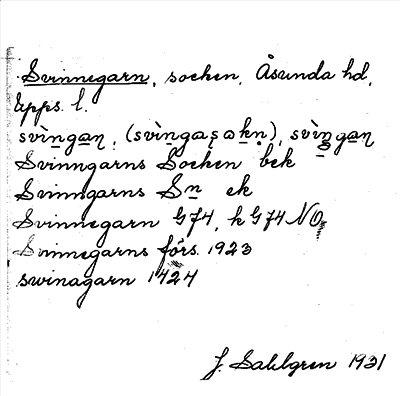 Svinnegarn, socken, Åsunda hd,
Upps. l.
svìn̲ga̲n̲, (svìn̲gaʂ ək̲n̲), svìn̲ga̲n̲
Svinngarns Socken bek
Svinngarns Sn ek
Svinnegarn GJ4, k GJ4 NO
Svinnegarns förs. 1923
swinagarn 1424
J. Sahlgren 1931